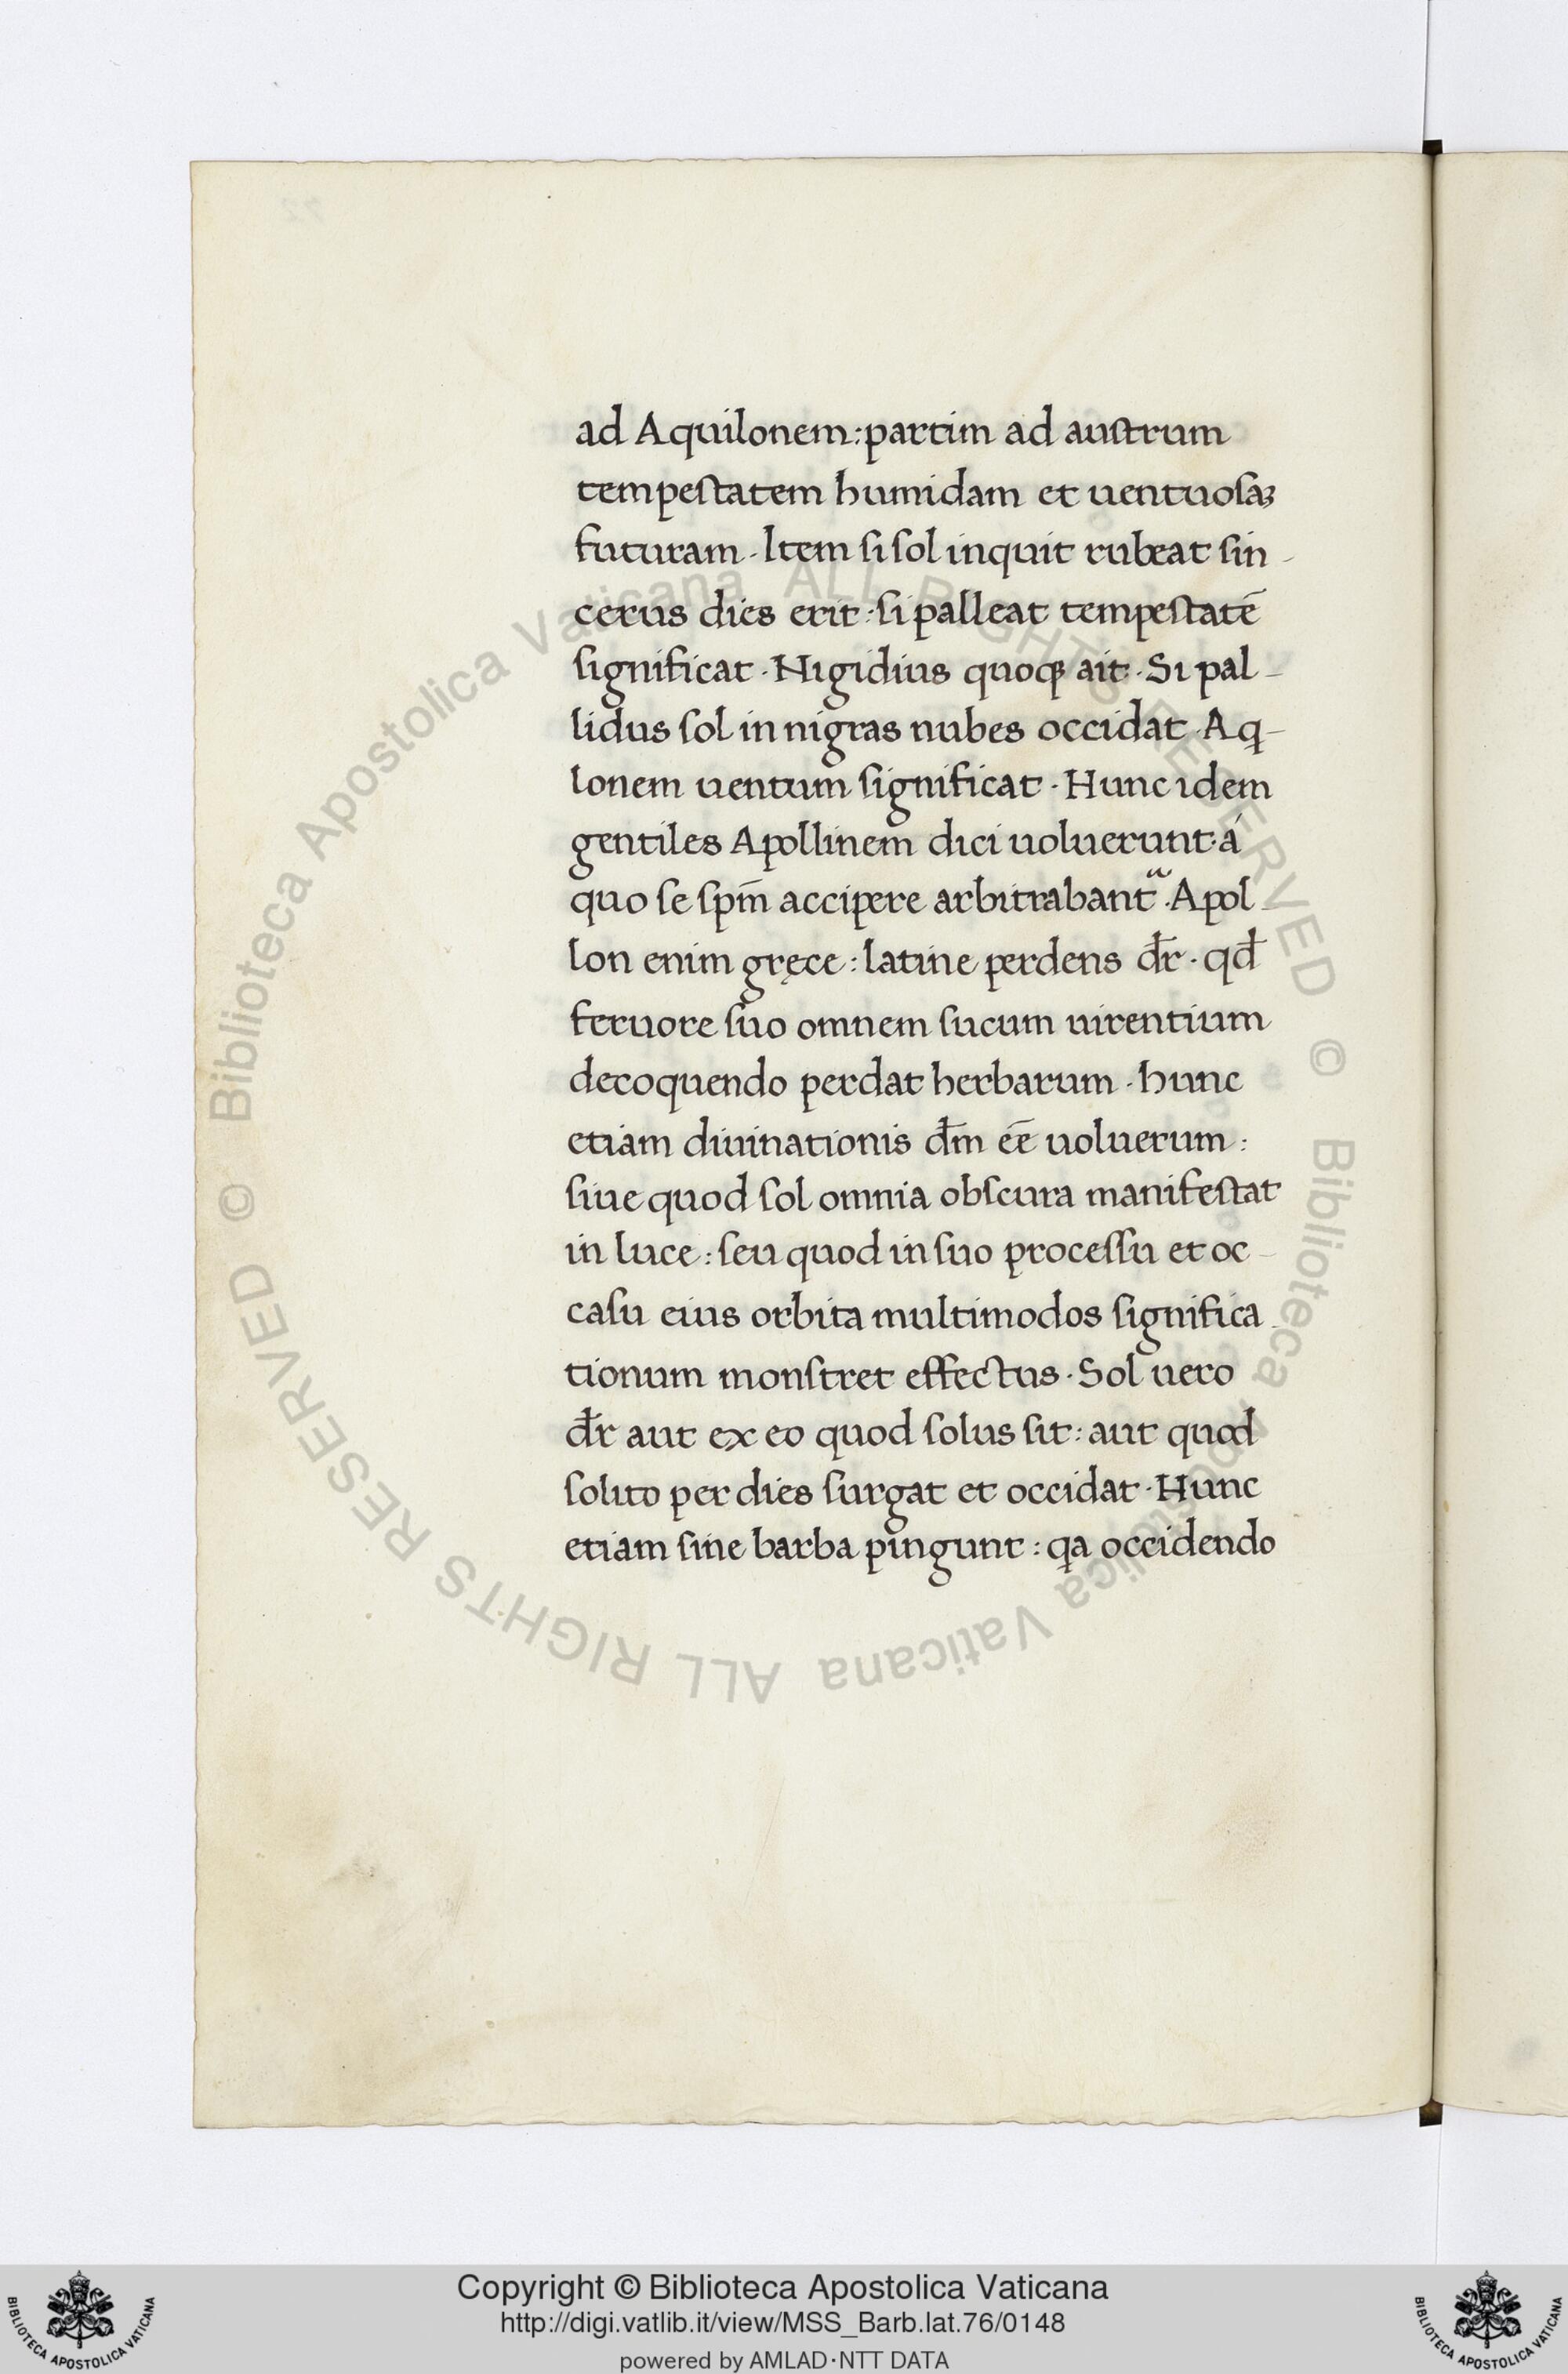 ad Aquilonem: partim ad austrum
tempestatem humidam et uentuosaꝫ
futuram · Item si sol inquit rubeat sin-
cerus dies erit: si palleat tempestatē
significat · Nigidius quoqꝫ ait · Si pal-
lidus sol in nigras nubes occidat · Aq-
lonem uentum significat · Hunc idem
gentiles Apollinem dici uoluerunt · á
quo se spm̄ accipere arbitrabant᷑ · Apol-
lon enim gręce: latine perdens dr̄ · qd̄
feruore suo omnem sucum uirentium
decoquendo perdat herbarum · hunc
etiam diuinationis dm̄ eē uoluerum:
siue quod sol omnia obscura manifestat
in luce: seu quod in suo processu et oc-
casu eius orbita multimodos significa-
tionum monstret effectus · Sol uero
dr̄ aut ex eo quod solus sit: aut quod
solito per dies surgat et occidat · Hunc
etiam sine barba pingunt: qa occidendo
© Biblioteca Apostolica Vaticana ALL RIGHTS RESERVED © Biblioteca Apostolica Vaticana ALL RIGHTS RESERVED
Copyright © Biblioteca Apostolica Vaticana
http://digi.vatlib.it/view/MSS_Barb.lat.76/0148
powered by AMLAD·NTT DATA
BIBLIOTECA APOSTOLICA VATICANA
BIBLIOTECA APOSTOLICA VATICANA